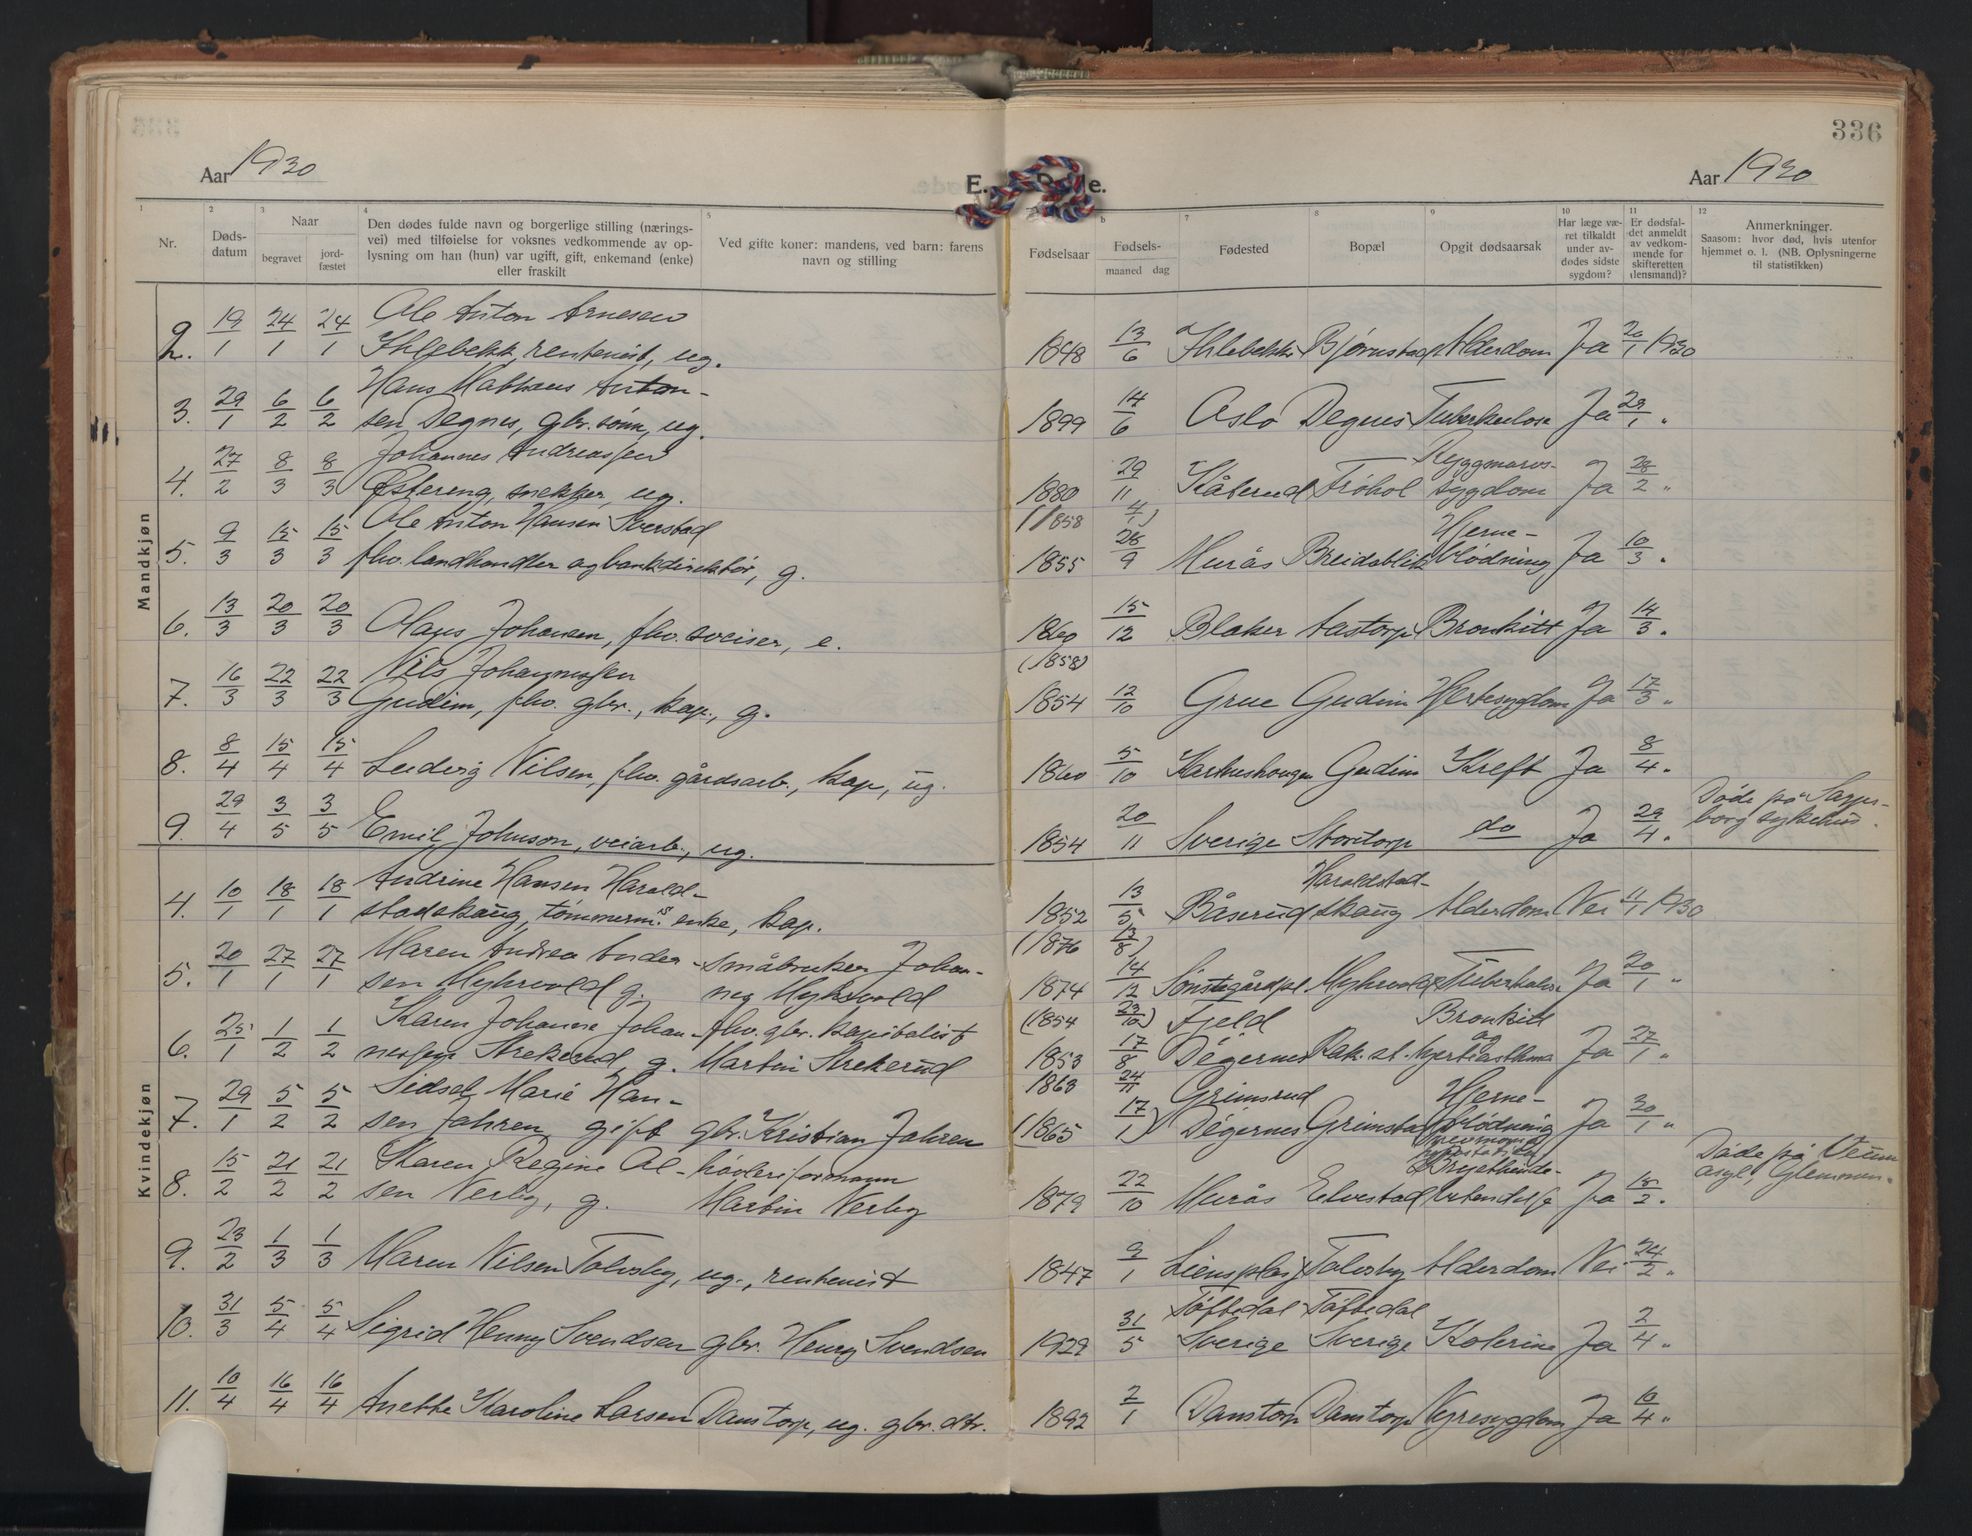 336
Aar 1930
E. Døde.
Aar 1930
1 2 3 4 5 6 7 8 9 10 11 12
Nr.
Døds-
datum
Naar
begravet
jord-
fæstet
Den dødes fulde navn og borgerlige stilling (nærings-
vei) med tilføielse for voksnes vedkommende av op-
lysning om han (hun) var ugift, gift, enkemand (enke)
eller fraskilt
Ved gifte koner: mandens, ved barn: farens
navn og stilling
Fødselsaar
Fødsels-
maaned dag
Fødested
Bopæl
Opgit dødsaarsak
Har læge væ-
ret tilkaldt
under av-
dødes sidste
sygdom?
Er dødsfal-
det anmeldt
av vedkom-
mende for
skifteretten
(lensmand)?
Anmerkninger.
Saasom: hvor død, hvis utenfor
hjemmet o. l. (NB. Oplysningerne
til statistikken)
Mandkjøn
2. 19/1 24/1 24/1 Ole Anton Arnesen
Ihlebekk, rentenist, ug. 1848 13/6 Ihlebekk Bjørnstad Alderdom Ja 20/1 1930
3. 29/1 6/2 6/2 Hans Mathæus Anton-
sen Degnes, gbr.sønn, ug. 1899 14/6 Oslo Degnes Tuberkulose Ja 29/1 "
4. 27/2 8/3 8/3 Johannes Andreassen
Østereng, snekker, ug. 1880 29/11 Kåterud Trøhol Ryggmarvs-
sygdom Ja 28/2 "
(1858 4/1)
5. 9/3 15/3 15/3 Ole Anton Hansen Sverstad
fhv. landhandler og bankdirektør, g. 1855 28/9 Murås Breidablik Hjerne-
blødning Ja 10/3 "
6. 13/3 20/3 20/3 Olaus Johansen, fhv. sveiser, e. 1860 15/12 Blaker Aastorp Bronkitt Ja 14/3 "
(1858)
7. 16/3 22/3 22/3 Nils Johannessen
Gudim, fhv. gbr., kap., g. 1854 12/10 Grue Gudim Hjertesygdom Ja 17/3 "
8. 8/4 15/4 15/4 Ludvig Nilsen, fhv. gårdsarb., kap., ug. 1860 5/10 Gudim Kreft Ja 8/4 "
9. 29/4 3/5 3/5 Emil Johnson, veiarb., ug. 1854 20/11 Sverige Stortorp do Ja 29/4 " Døde på Sarps-
borg sykehus.
Kvindekjøn
4. 10/1 18/1 18/1 Andrine Hansen Harald-
stadskaug, tømmerm.s enke, kap. 1852 13/5 Båserud Haraldstad-
skaug Alderdom Nei 11/1 1930
(1876 13/8)
5. 20/1 27/1 27/1 Maren Andrea Ander-
sen Myhrvold g. småbruker Johan-
nes Myhrvold 1874 14/12 Sønstegårdpl. Myhrvold Tuberkulose Ja 20/1 "
(1854 23/10)
6. 25/1 1/2 1/2 Karen Johanne Johan-
nessen Strekerud, g. fhv. gbr. kapitalist
Martin Strekerud 1853 17/8 Fjeld
Degernes Rak. st. Bronkitt
og
hjerteasthma Ja 27/1 "
1863 24/11
7. 29/1 5/2 5/2 Sidsel Marie Han-
sen Jahren gift gbr. Kristian Jahren (1865 17/1) Grimsrud
Degernes Grimstad Hjerne-
blødning Ja 30/1 "
8. 15/2 21/2 21/2 Karen Regine Ol-
sen Nerby, g. høvleriformann
Martin Nerby 1879 22/10 Murås Elvestad Ja 15/2 " Døde på Veum
asyl, Glemmen.
9. 23/2 1/3 1/3 Maren Nilsen Tolvsby, ug., rentenist 1847 9/1 Liensplass Tolvsby Alderdom Nei 24/2 "
10. 31/3 5/4 5/4 Sigrid Henny Svendsen gbr. Henry Svendsen 1929 31/5 Tøftedal
Sverige Tøftedal
Sverige Kolerine Ja 2/4 "
11. 10/4 16/4 16/4 Anette Karoline Larsen Danstorp, ug. gbr. dtr. 1892 2/1 Danstorp Danstorp Nyresygdom Ja 10/4 "